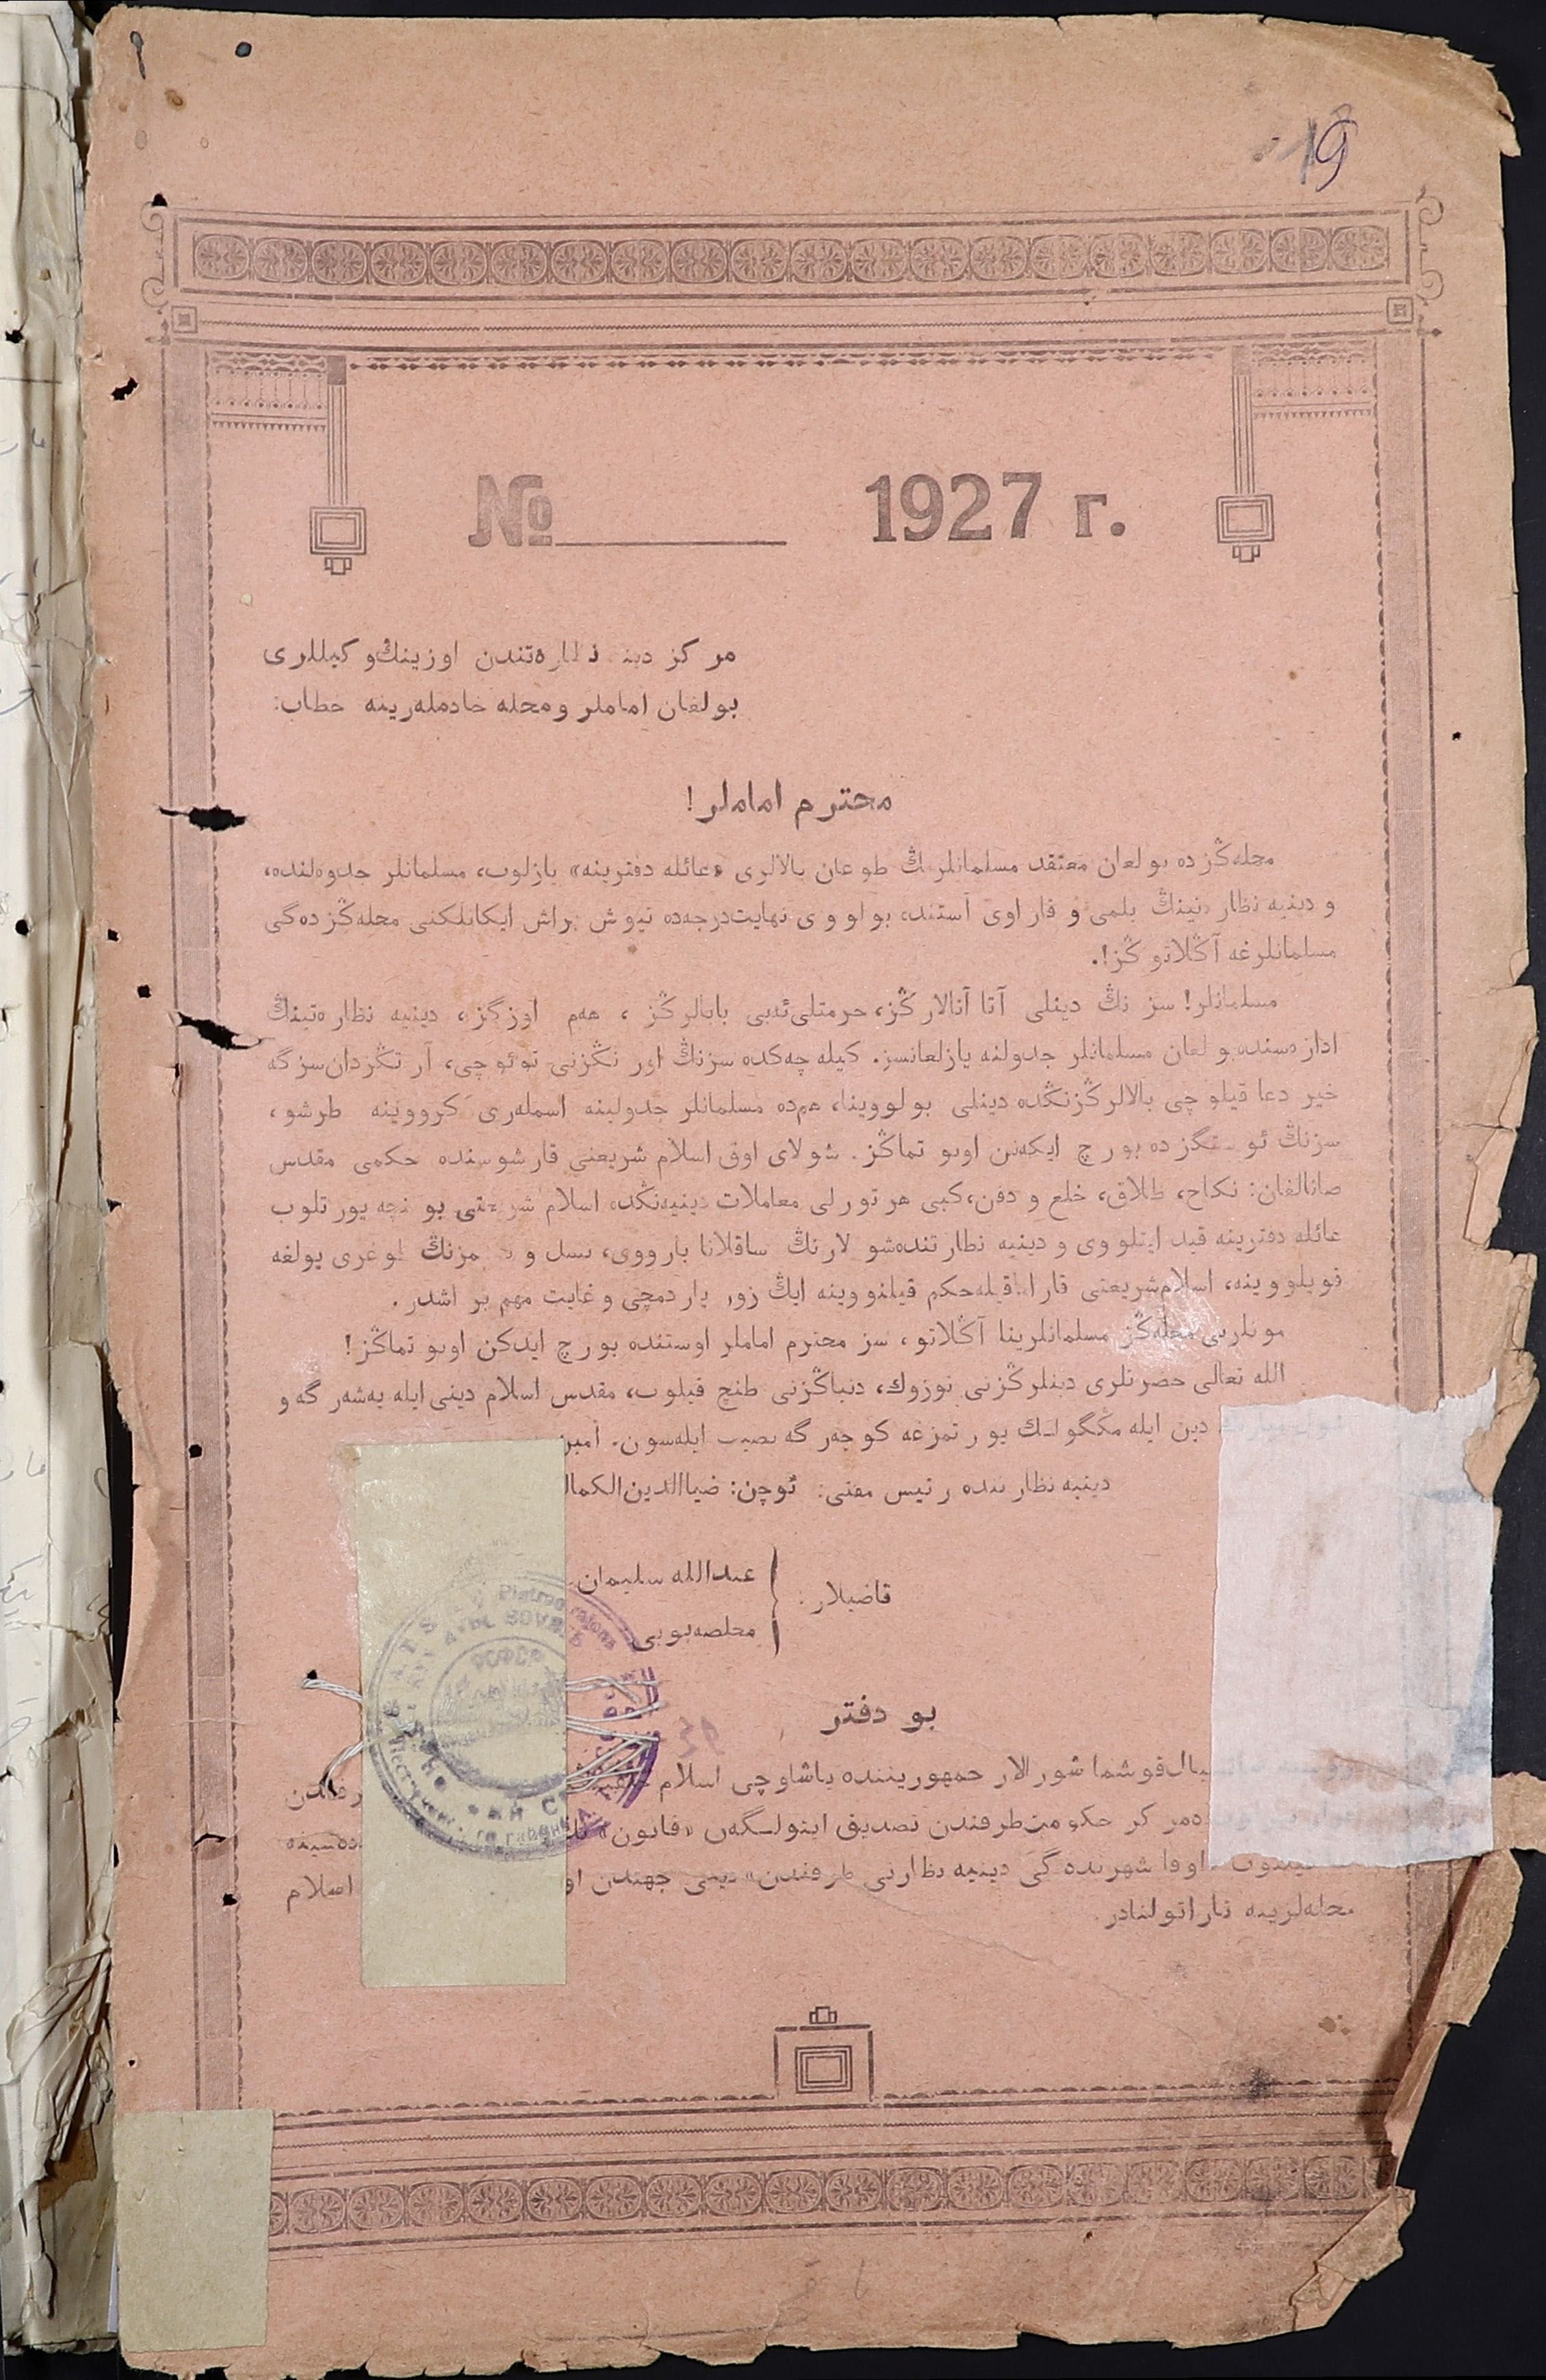 19
№ 1927 г.
مركز دينيه نظارەتندن اوزينڭ وكيللرى
بولغان اماملر و محله خادملەرينه خطاب:
محترم اماملر!
محلەڭزده بولغان معتقد مسلمانلرنڭ طوغان بالالرى «عائله دفترينه» يازلوب، مسلمانلر جدوەلنده،
و دينيه نظارەتينڭ بلمى و قاراوى آستنده بولووى نهايت درجەده تيوش براش ايكانلكنى محلەڭزدەگى
مسلمانلرغه آڭلاتوڭز!.
مسلمانلر! سزنڭ دينلى آتا آنالارڭز، حرمتلى ئەبى بابالرڭز، هەم اوزڭز، دينيه نظارەتينڭ
ادارەسنده بولغان مسلمانلر جدولنه يازلغانسز. كيله چەكده سزنڭ اورنڭزنى توئوچى، آرتڭزدان سزگه
خير دعا قيلوچى بالالرڭزنڭده دينلى بولووينا، هەمده مسلمانلر جدولينه اسملەرى كرووينه طرشو،
سزنڭ ئوستڭزده بورچ ايكەنن اونوتماڭز. شولاى اوق اسلام شريعتى قارشوسنده حكمى مقدس
صانالغان: نكاح، طلاق، خلع و دفن، كبى هر تورلى معاملات دينيەنڭده اسلام شريعتى بوينچه يورتلوب
عائله دفترينه قيد ايتلووى و دينيه نظارتنده شولارنڭ ساقلانا بارووى، نسل و مزنڭ طوغرى يولغه
قويلووينه، اسلام شريعتى قاراماقيله حكم قيلنووينه ايڭ زور ياردمچى و غايت مهم بر اشدر.
مونلرنى محلەڭز مسلمانلرينا آڭلاتو، سز محترم اماملر اوستنده بورچ ايدكن اونوتماڭز!
الله تعالى حضرتلرى دينلرڭزنى توزوك، دنياڭزنى طنچ قيلوب، مقدس اسلام دينى ايله يەشەرگه و
دين ايله مڭگولك يورتمزغه كوچەرگه نصيب ايلەسون. آمين
دينيه نظارتنده رئيس مفتى: ئوچن: ضياالدين الكمال
قاضيلار:
عبدالله سليمان
مخلصه بوبى
بو دفتر
قوشما شورالار جمهوريتنده ياشاوچى اسلام رفندن
مركز حكومت طرفندن تصديق ايتولگەن «قانون»
اوفا شهرندەگى دينيه نظارتى طرفندن دينى جهتدن اسلام
محلەلرينه تاراتولنادر.